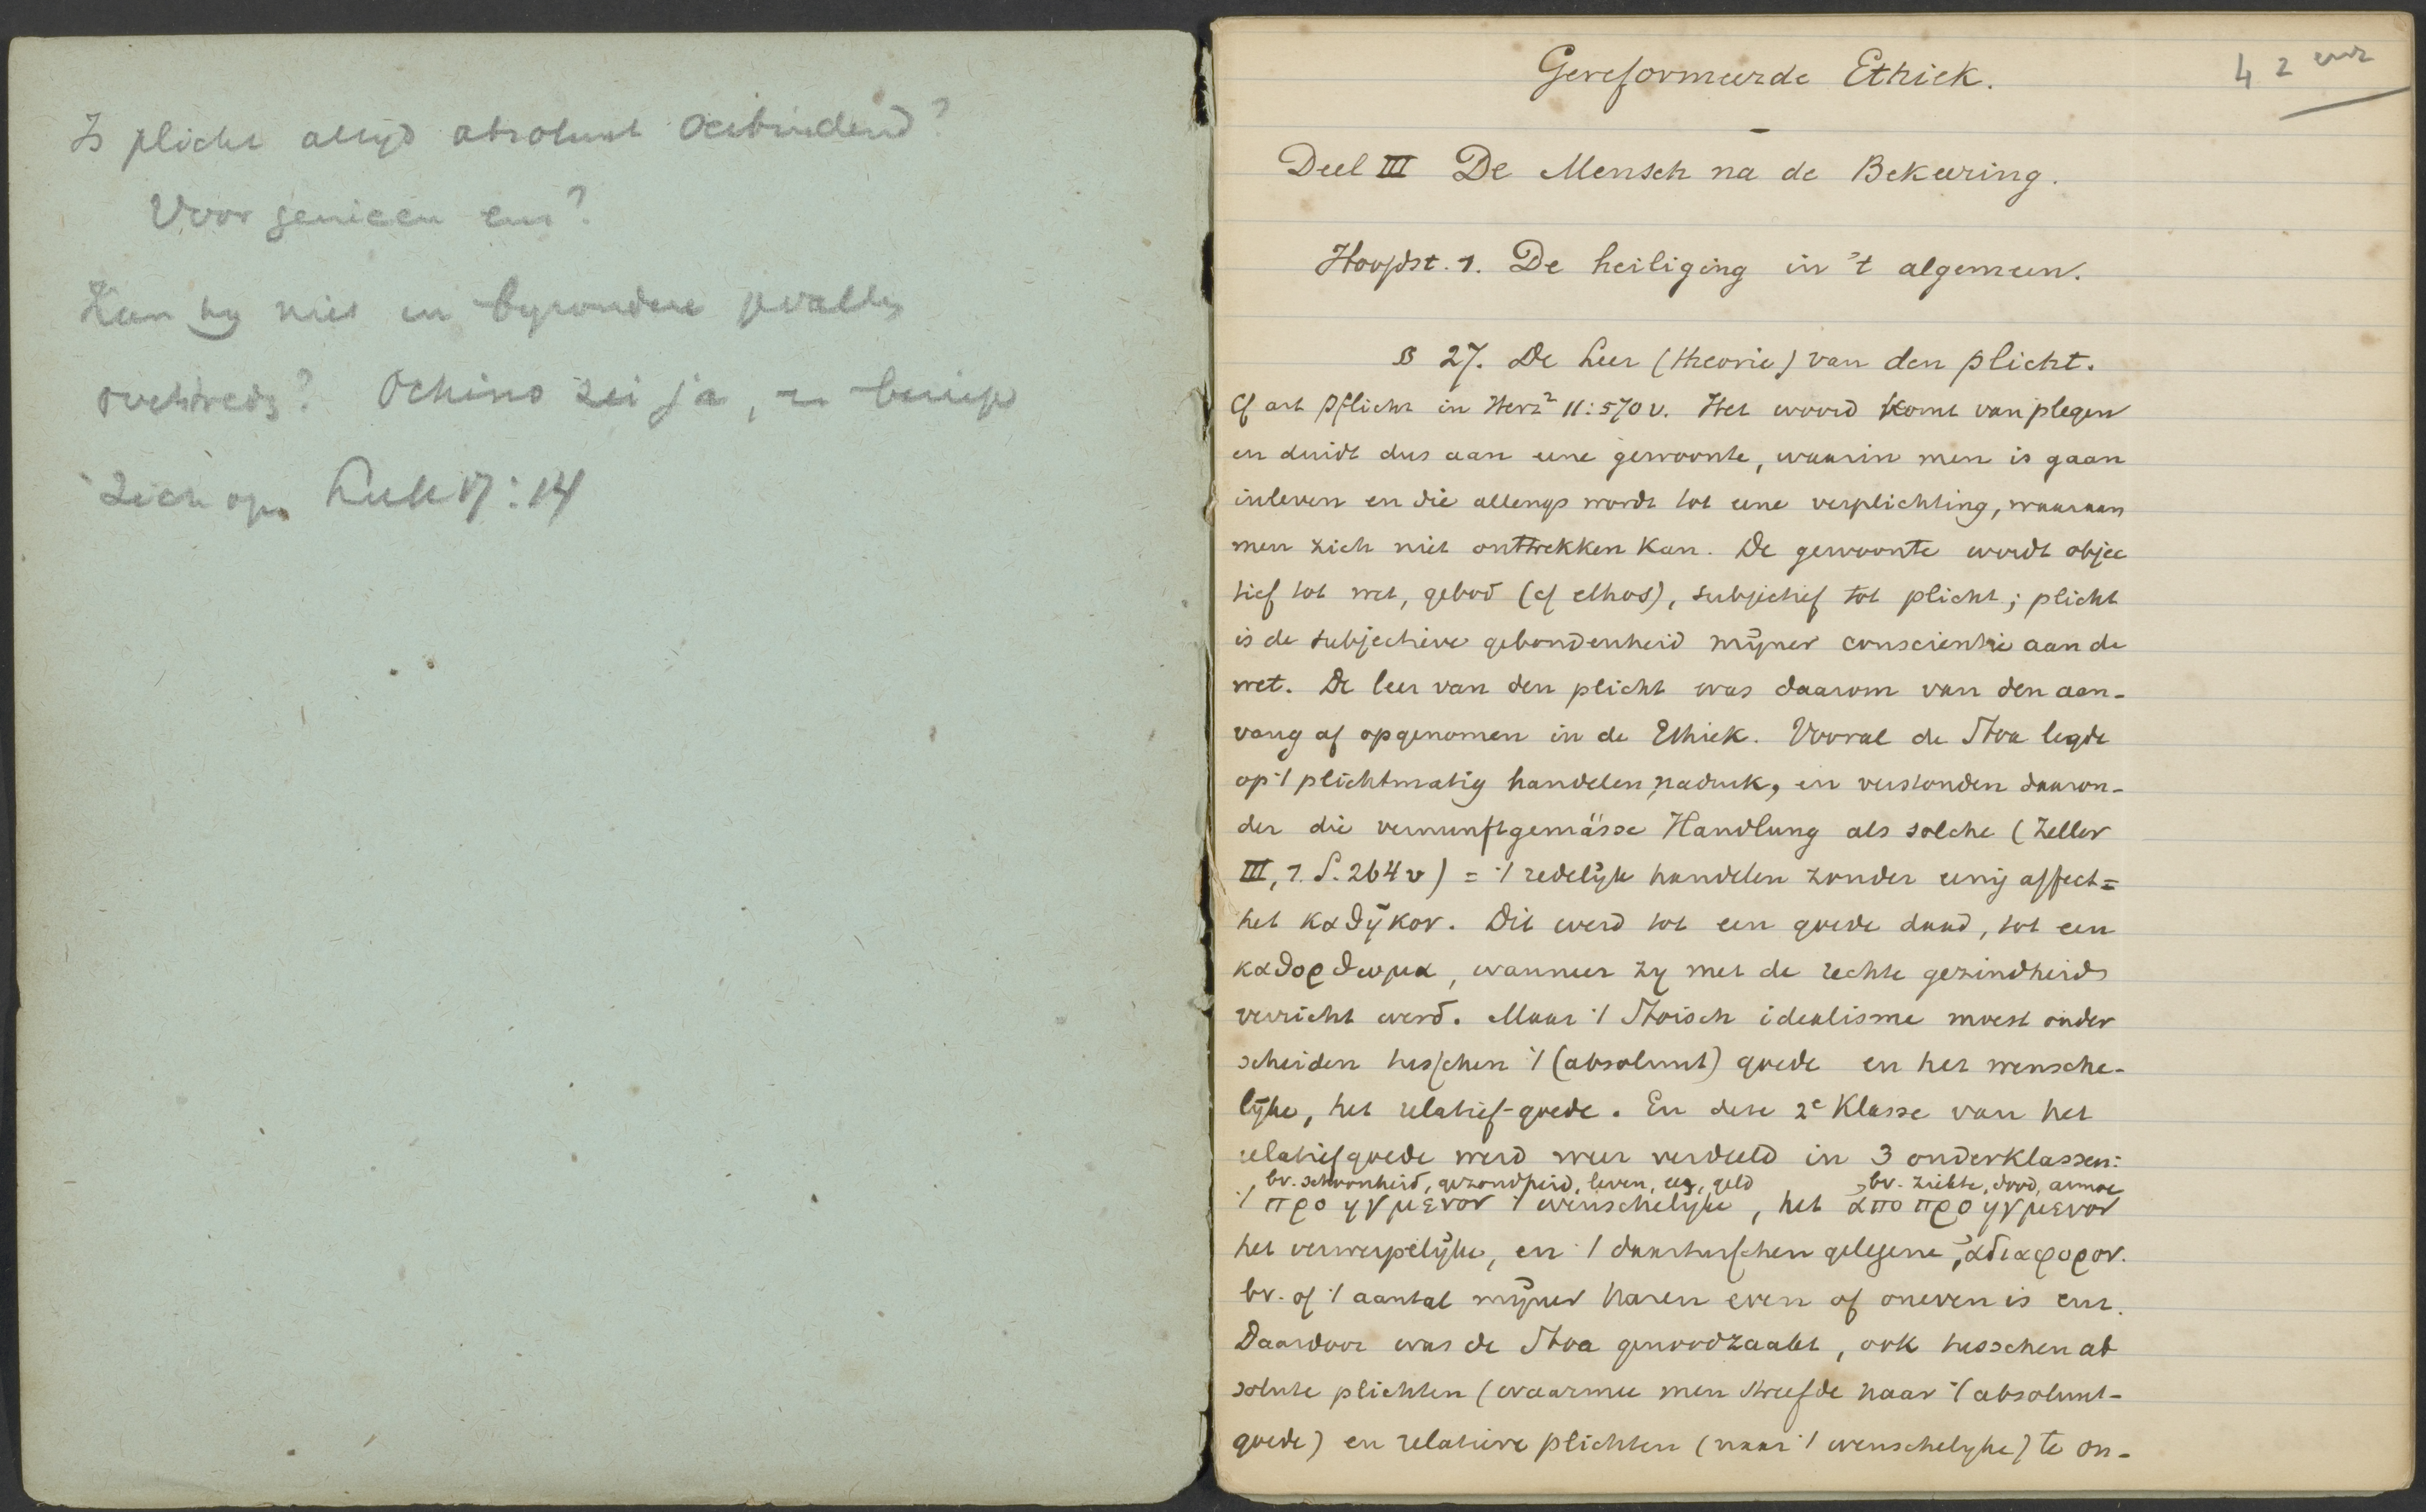 Is plicht altijd absoluut verbindend?
Voor genieën enz?
Kan hij niet in byzondere gevallen
overtreden? Ochino zei ja, en beriep
zich op Luk 17:14
42 uur
Gereformeerde Ethiek.
Deel III De Mensch na de Bekeering.
Hoofdst. 1. De heiliging in 't algemeen.
§ 27. De Leer (theorie) van den plicht.
Cf art Pflicht in Herz² 11:570v. Het woord komt van plegen
en duidt dus aan eene gewoonte, waarin men is gaan
inleven en die allengs wordt tot eene verplichting, waaraan
men zich niet onttrekken kan. De gewoonte wordt objec
tief tot wet, gebod (cf ethos), subjectief tot plicht; plicht
is de subjectieve gebondenheid mijner conscientie aan de
wet. De leer van den plicht was daarom van den aan-
vang af opgenomen in de Ethiek. Vooral de Stoa legde
op 't plichtmatig handelen nadruk, en verstonden daaron-
der die vernunftgemässe Handlung als solche (Zeller
III, 1. S. 264v) = 't redelijk handelen zonder eenig affect =
het καθῆκον. Dit werd tot een goede daad, tot een
καθορθωμα, wanneer zij met de rechte gezindheid
verricht werd. Maar 't Stoisch idealisme moest onder
scheiden tusschen 't (absoluut) goede en het wensche-
lijke, het relatief-goede. En deze 2e Klasse van het
relatiefgoede werd weer verdeeld in 3 onderklassen:
bv. schoonheid, gezondheid, leven, eer, geld bv. ziekte, dood, armoe
't προηγμενον 't wenschelijke, het αποπροηγμενον
het verwerpelijke, en 't daartusschen gelegene, αδιαφορον.
bv. of 't aantal mijner haren even of oneven is enz.
Daardoor was de Stoa genoodzaakt, ook tusschen ab
solute plichten (waarmee men streefde naar 't absoluut-
goede) en relatieve plichten (naar 't wenschelijke) te on-